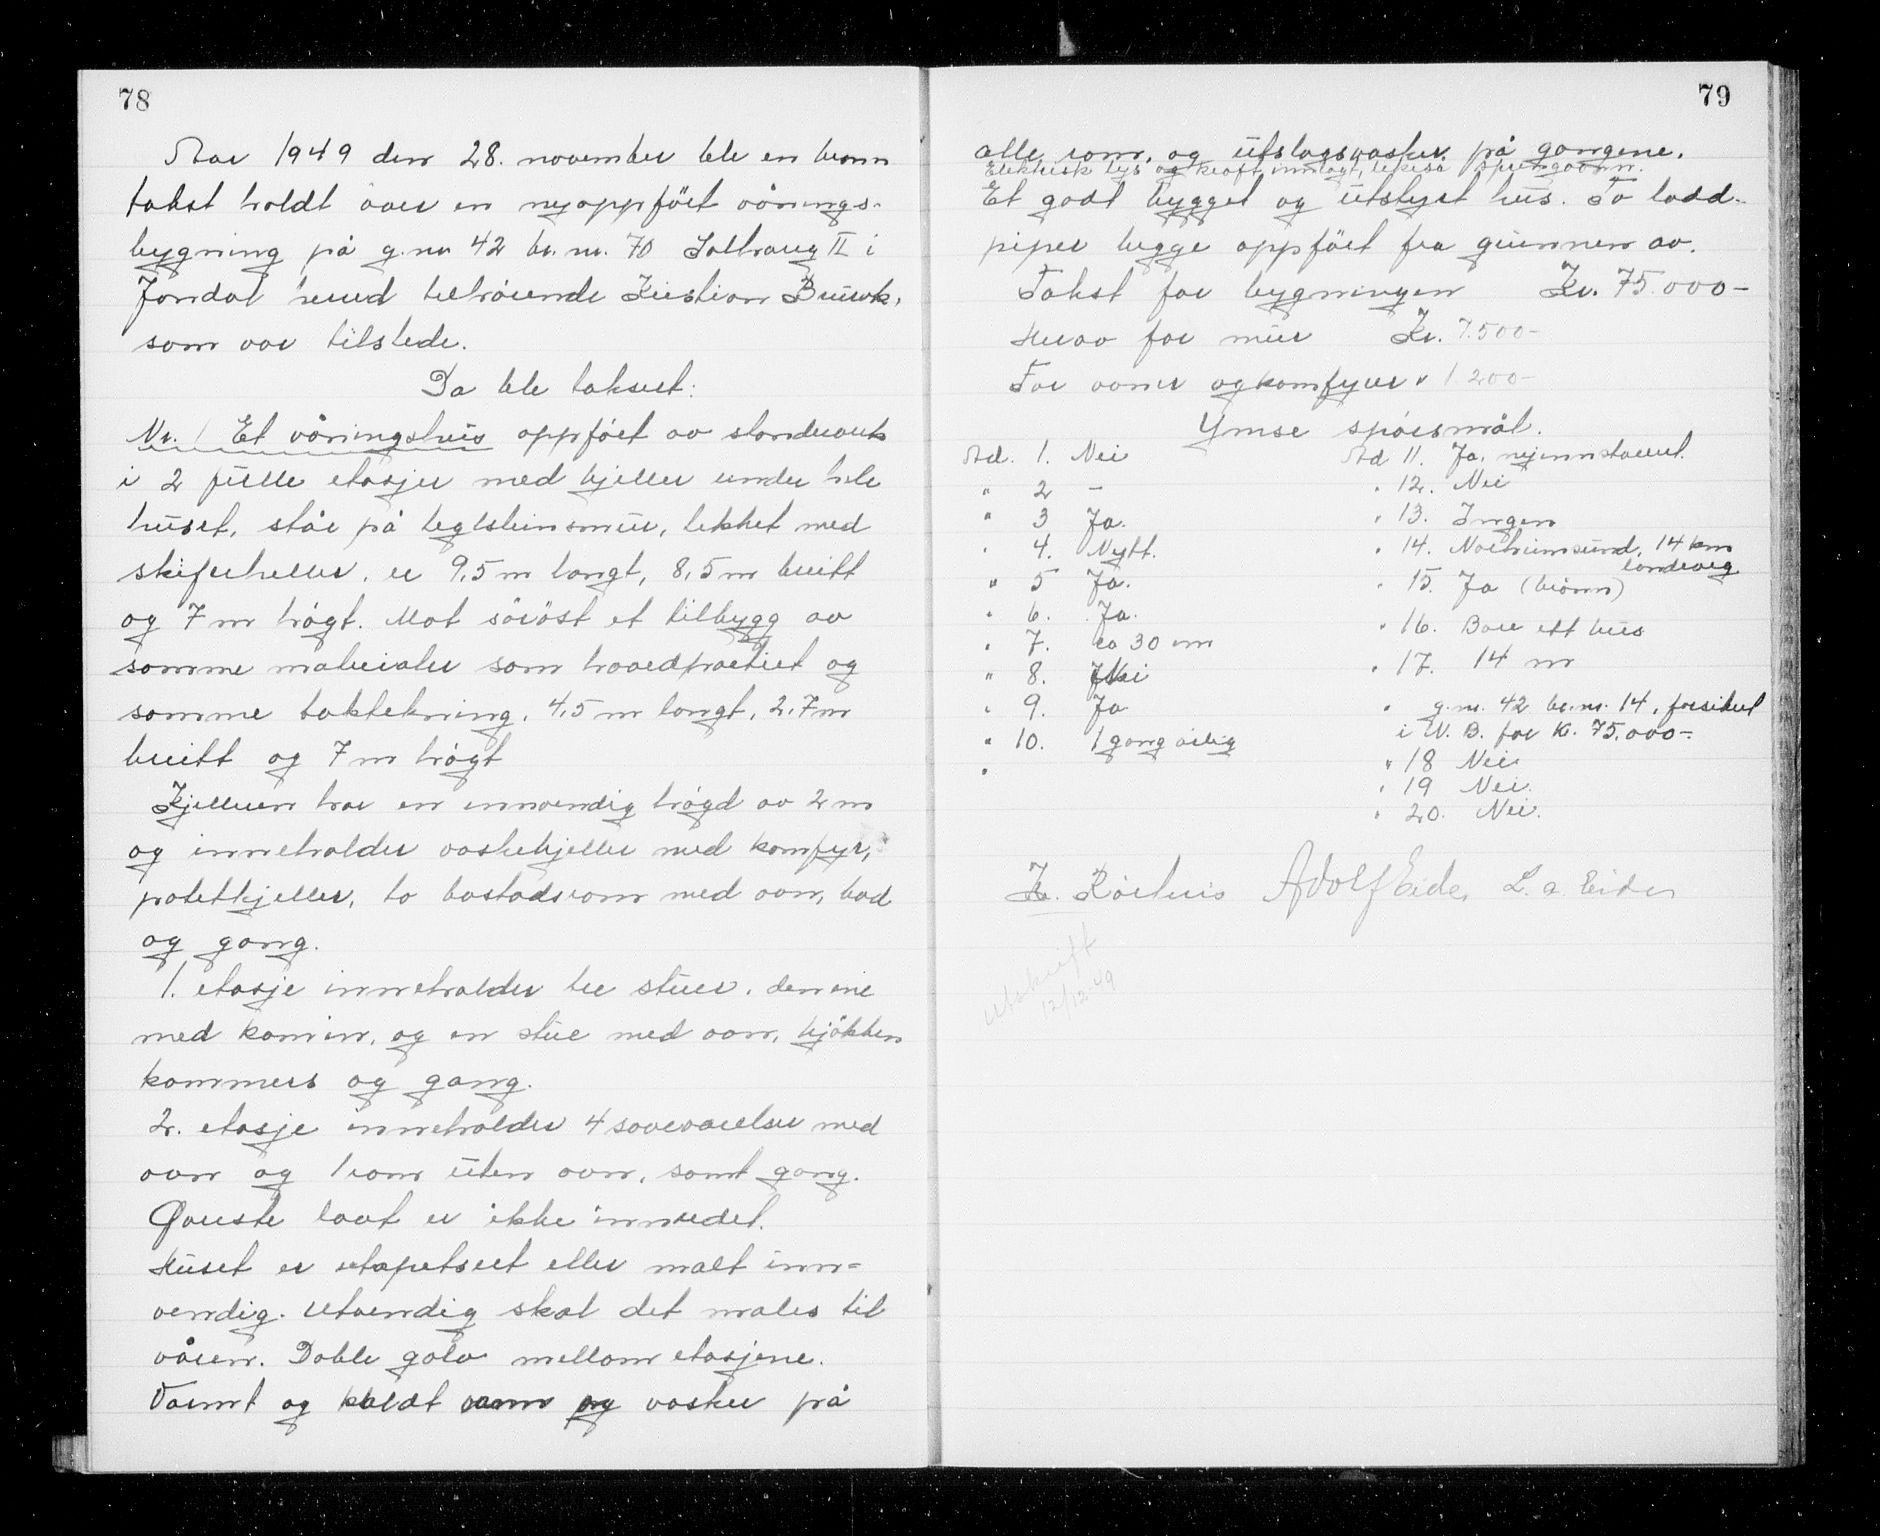 78
Aar 1949 den 28. november ble en brann
takst holdt over en nyoppført vånings-
bygning på g.nr 42 br.nr. 70 Solhaug II i
Jondal herred tilhørende Kristian Bruvik,
som var tilstede.
Da ble taksert:
Nr. 1 Et våningshus oppført av standerverk
i 2 fulle etasjer med kjeller under hele
huset, står på teglsteinsmur, tekket med
skiferheller, er 9,5 m langt, 8,5 m breitt
og 7 m høgt. Mot sørøst et tilbygg av
samme materialer som hovedpartiet og
samme taktekning, 4,5 m langt, 2,7 m
breitt og 7 m høgt
Kjelleren har en innvendig høgd av 2 m
og inneholder vaskekjeller med komfyr,
potetkjeller, to bostadsrom med ovn, bad
og gang.
1. etasje inneholder tre stuer, den eine
med kamin, og en stue med ovn, kjøkken
kammers og gang.
2. etasje inneholder 4 soveværelser med
ovn og 1 rom uten ovn, samt gang.
Øverste loft er ikke innredet.
Huset er utapetsert eller malt inn-
vendig. Utvendig skal det males til
våren. Doble golv mellom etasjene.
Varmt og kaldt vann og vasker på
79
alle rom, og utslagsvasker på gangene.
Elektrisk lys og kraft innlagt, likeså springvann.
Et godt bygget og utstyrt hus. To ladd-
piper begge oppført fra grunnen av.
Takst for bygningen Kr. 75.000–
Herav for mur Kr. 7.500–
For ovner og komfyrer " 1 200–
Ymse spørsmål.
Ad. 1. Nei
" 2 –
" 3 Ja.
" 4. Nytt.
" 5 Ja.
" 6. Ja.
" 7. ca 30 cm
" 8. Nei
" 9. Ja
" 10. 1 gang årlig
"
Ad 11. Ja, nyinnstallert.
" 12. Nei
" 13. Ingen
" 14. Norheimsund, 14 km
landveg
" 15. Ja (brønn)
" 16. Bare ett hus
" 17. 14 m
" g.nr. 42 br.nr. 14, forsikret
i N. B. for k. 75.000–.
" 18 Nei
" 19 Nei.
" 20. Nei.
K. Rørhus Adolf Eide, L. a. Eide
Utskrift
12/12 49